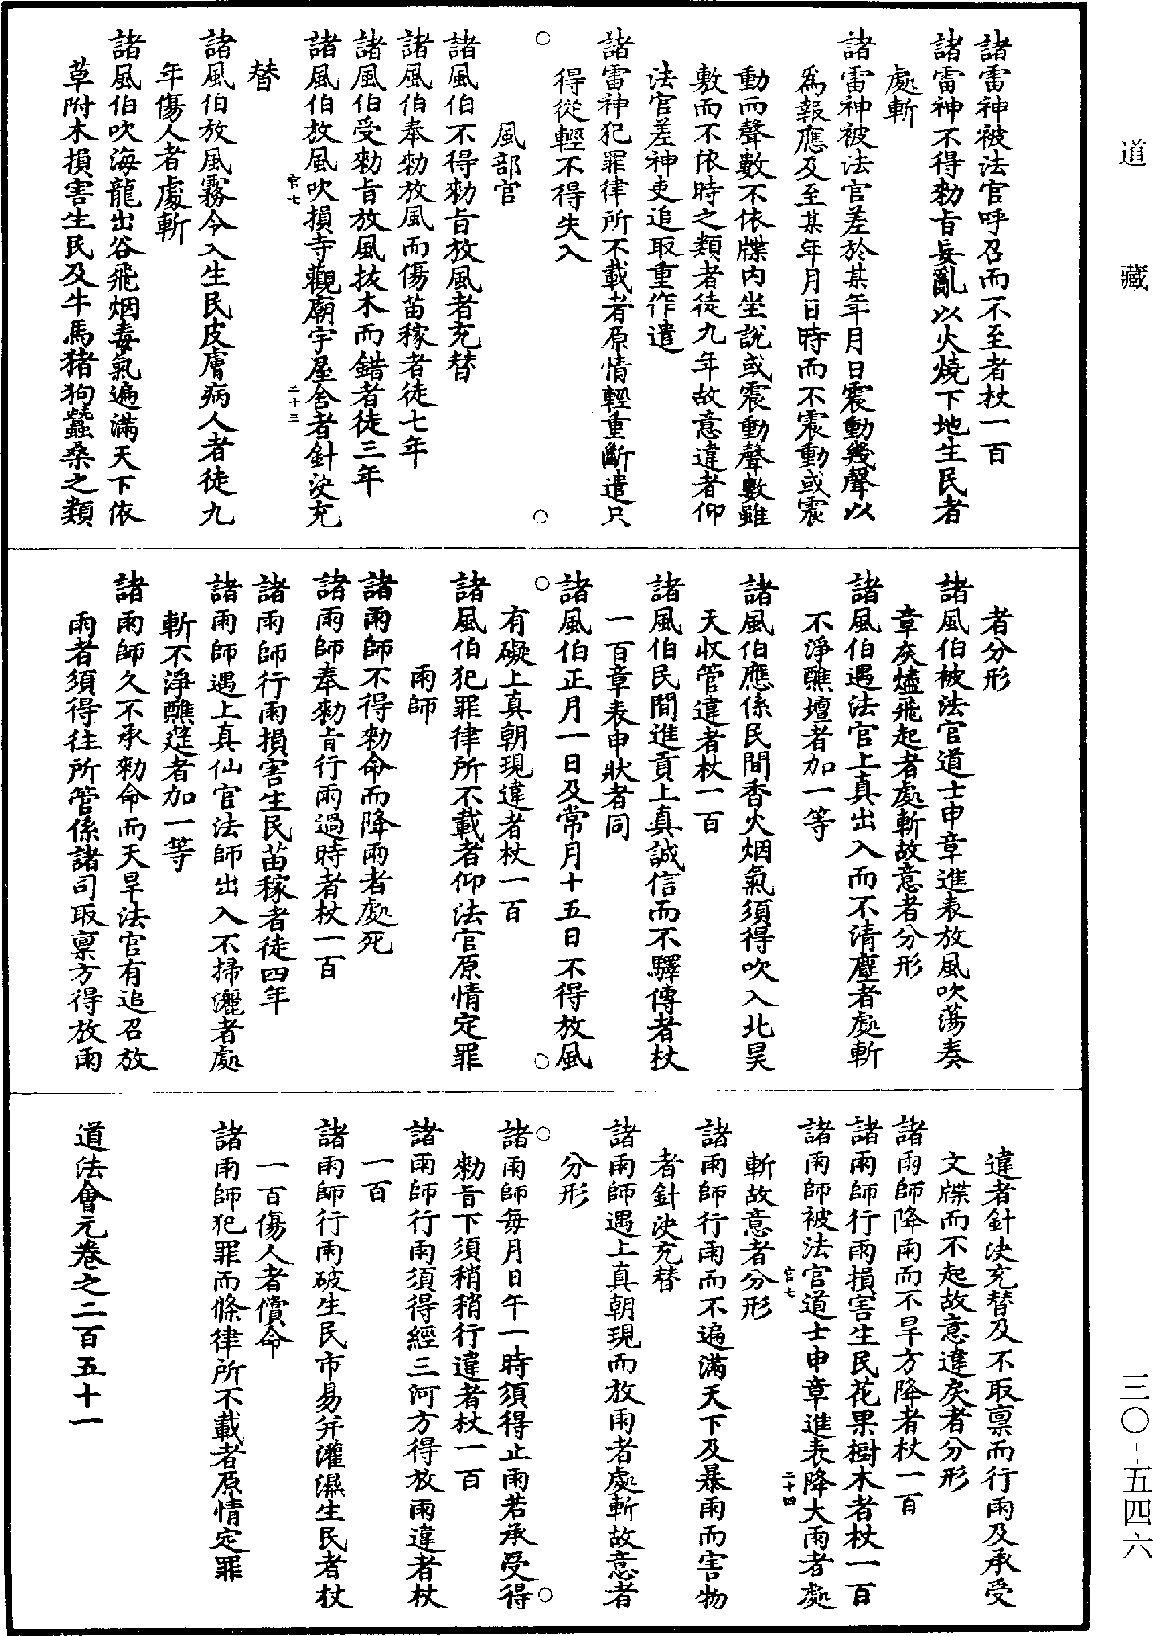 道藏
三〇-五四六
諸雷神被法官呼召而不至者杖一百
諸雷神不得勑旨妄亂以火燒下地生民者
處斬
諸雷神被法官差於某年月日震動幾聲以
為報應及至某年月日時而不震動或震
動而聲數不依牒內坐說或震動聲數雖
敷而不依時之類者徒九年故意違者仰
法官差神吏追取重作遣
諸雷神犯罪律所不載者原情輕重斷遣只
得從輕不得失入
風部官
諸風伯不得勑旨放風者充替
諸風伯奉勑放風而傷苗稼者徒七年
諸風伯受勑旨放風拔木而錯者徒三年
官七 二十三
諸風伯放風吹損寺觀廟宇屋舍者針決充
替
諸風伯放風霧令入生民皮膚病人者徒九
年傷人者處斬
諸風伯吹海龍出谷飛烟毒氣遍滿天下依
草附木損害生民及牛馬猪狗蠶桑之類
者分形
諸風伯被法官道士申章進表放風吹蕩奏
章灰爐飛起者處斬故意者分形
諸風伯遇法官上真出入而不清塵者處斬
不淨醮壇者加一等
諸風伯應係民間香火烟氣須得吹入北昊
天收管違者杖一百
諸風伯民間進貢上真誠信而不驛傳者杖
一百章表申狀者同
諸風伯正月一日及常月十五日不得放風
有礙上真朝現違者杖一百
諸風伯犯罪律所不載者仰法官原情定罪
雨師
諸雨師不得勑命而降雨者處死
諸雨師奉勑旨行雨過時者杖一百
諸雨師行雨損害生民苗稼者徒四年
諸雨師遇上真仙官法師出入不掃灑者處
斬不淨醮筵者加一等
諸雨師久不承勑命而天旱法官有追召放
雨者須得往所管係諸司取稟方得放雨
違者針決充替及不取稟而行雨及承受
文牒而不起故意違戾者分形
諸雨師降雨而不旱方降者杖一百
諸雨師行雨損害生民花果樹木者杖一百
官七 二十四
諸雨師被法官道士申章進表降大雨者處
斬故意者分形
諸雨師行雨而不遍滿天下及暴雨而害物
者針決充替
諸雨師遇上真朝現而放雨者處斬故意者
分形
諸雨師每月日午一時須得止雨若承受得
勑旨下須稍稍行違者杖一百
諸雨師行雨須得經三河方得放雨違者杖
一百
諸雨師行雨破生民市易并灌濕生民者杖
一百傷人者償命
諸雨師犯罪而條律所不載者原情定罪
道法會元卷之二百五十一